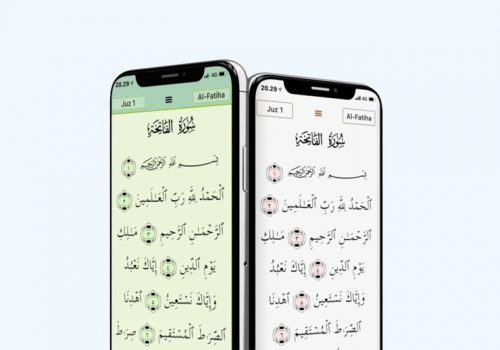 20.29 4G
Juz 1 Al-Fatiha
سُورَةُ الفَاتِحَةِ
بِسْمِ ٱللَّهِ ٱلرَّحْمَٰنِ ٱلرَّحِيمِ ١
ٱلْحَمْدُ لِلَّهِ رَبِّ ٱلْعَٰلَمِينَ ٢
ٱلرَّحْمَٰنِ ٱلرَّحِيمِ ٣ مَٰلِكِ
يَوْمِ ٱلدِّينِ ٤ إِيَّاكَ نَعْبُدُ
وَإِيَّاكَ نَسْتَعِينُ ٥ ٱهْدِنَا
ٱلصِّرَٰطَ ٱلْمُسْتَقِيمَ ٦ صِرَٰطَ
20.29 4G
Juz 1 Al-Fatiha
سُورَةُ الفَاتِحَةِ
بِسْمِ ٱللَّهِ ٱلرَّحْمَٰنِ ٱلرَّحِيمِ ١
ٱلْحَمْدُ لِلَّهِ رَبِّ ٱلْعَٰلَمِينَ ٢
ٱلرَّحْمَٰنِ ٱلرَّحِيمِ ٣ مَٰلِكِ
يَوْمِ ٱلدِّينِ ٤ إِيَّاكَ نَعْبُدُ
وَإِيَّاكَ نَسْتَعِينُ ٥ ٱهْدِنَا
ٱلصِّرَٰطَ ٱلْمُسْتَقِيمَ ٦